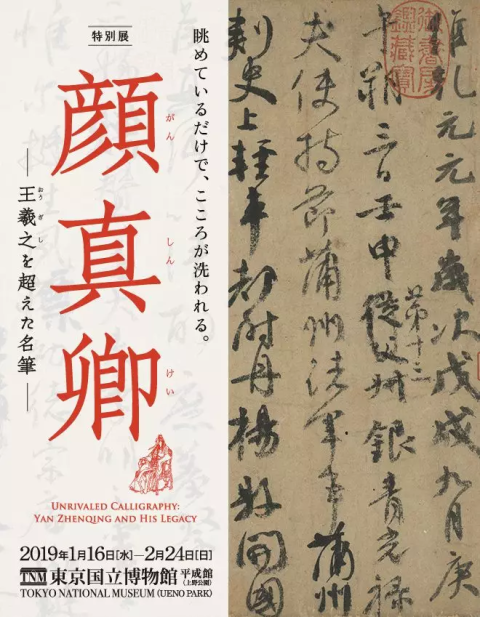 特別展
眺めているだけで、こころが洗われる。
顔真卿
がんしんけい
―王羲之を超えた名筆―
おうぎし
UNRIVALED CALLIGRAPHY:
YAN ZHENQING AND HIS LEGACY
2019年1月16日[水]―2月24日[日]
TNM 東京国立博物館 平成館
(上野公園)
TOKYO NATIONAL MUSEUM (UENO PARK)
維乾元元年歲次戊戌九月庚
午朔三日壬申從父叔銀青光祿
第十三
夫使持節蒲州諸軍事蒲州
刺史上輕車都尉丹楊縣開國
御書房鑑藏寶